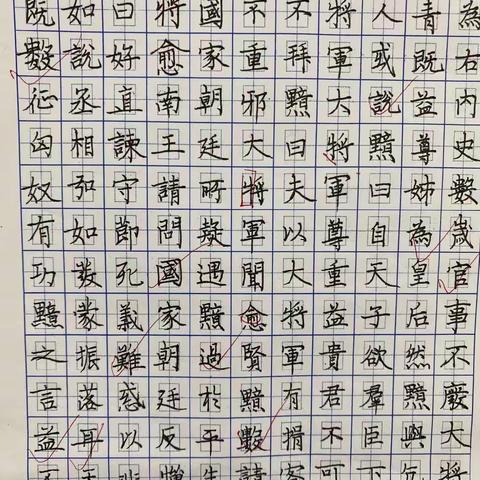 為右內史數歲官事不廢大將
青既益尊姊為皇后然黯與亢
人或說黯曰自天子欲羣臣下
將軍大將軍尊重益貴君不可
不拜黯曰夫以大將軍有揖客
不重邪大將軍聞愈賢黯數請
國家朝廷所疑遇黯過於平生
將愈南王請問國家朝廷反憚
曰好直諫守節死義難惑以非
如說丞相弘如發蒙振落耳天
既數征匈奴有功黯之言益不